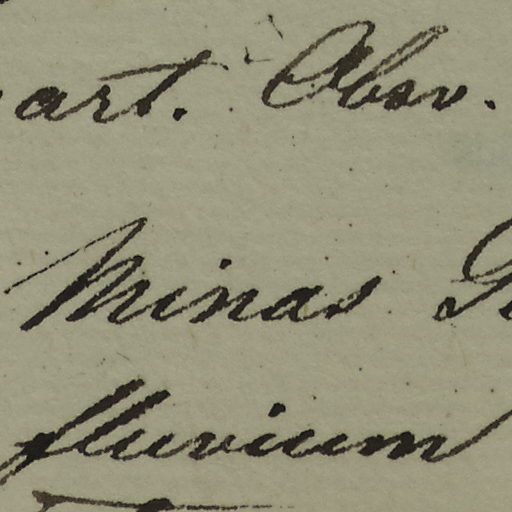 art. Obsv.
Minas G
fluvium